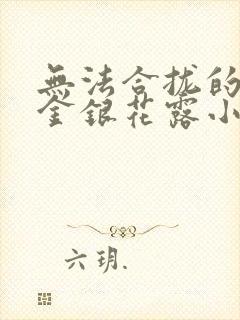 無法合拢的
金銀花露小
六玥.